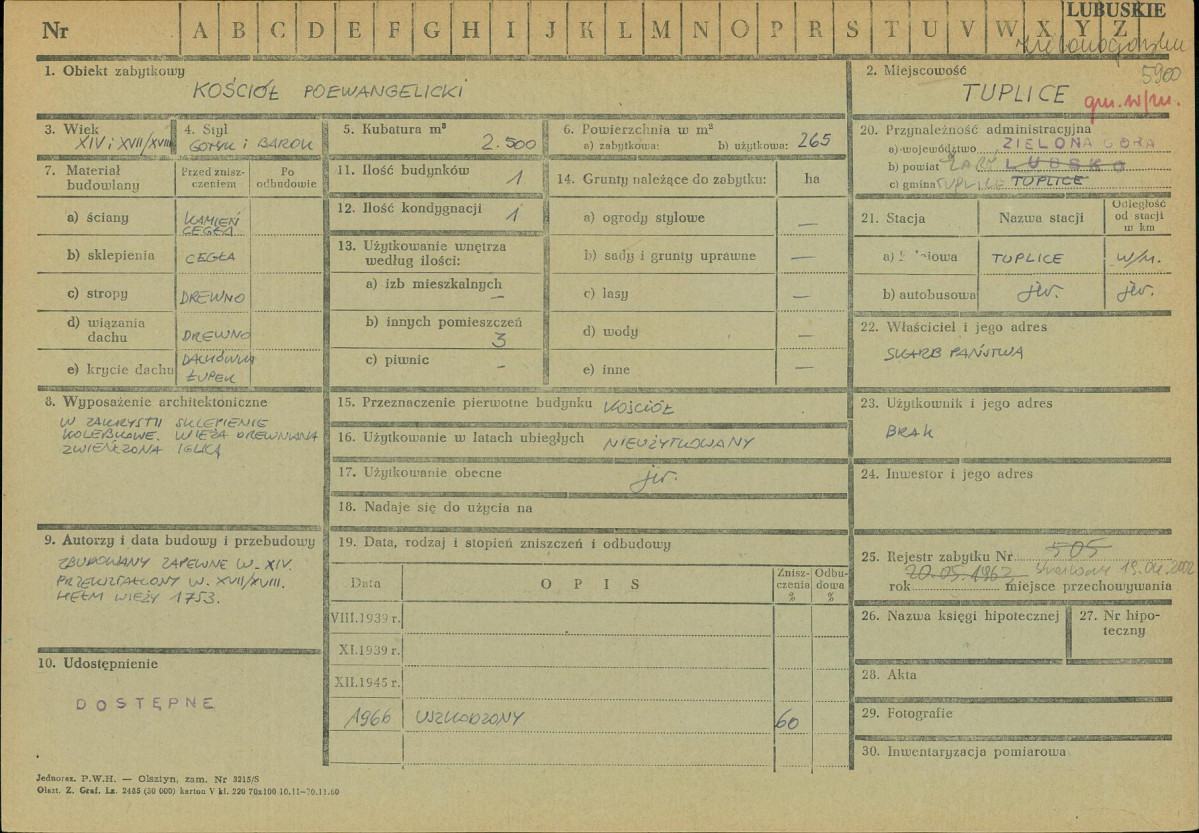 LUBUSKIE
Nr A B C D E F G H I J K L M N O P R S T U V W X Y Z
5900
1. Obiekt zabytkowy
KOŚCIÓŁ POEWANGELICKI
2. Miejscowość
TUPLICE gm. w/m.
3. Wiek
XIV i XVII/XVIII
4. Styl
GOTYK i BAROK
5. Kubatura m³
2.500
6. Powierzchnia w m²
a) zabytkowa: b) użytkowa: 265
7. Materiał budowlany
Przed zniszczeniem
Po odbudowie
a) ściany KAMIEŃ CEGŁA
b) sklepienia CEGŁA
c) stropy DREWNO
d) wiązania dachu DREWNO
e) krycie dachu DACHÓWKA ŁUPEK
8. Wyposażenie architektoniczne
W ZAKRYSTII SKLEPIENIE
KOLEBKOWE. WIEŻA DREWNIANA
ZWIEŃCZONA IGLICĄ
9. Autorzy i data budowy i przebudowy
ZBUDOWANY ZAPEWNE W. XIV.
PRZEKSZTAŁCONY W. XVII/XVIII.
HEŁM WIEŻY 1753.
10. Udostępnienie
DOSTĘPNE
11. Ilość budynków 1
12. Ilość kondygnacji 1
13. Użytkowanie wnętrza
według ilości:
a) izb mieszkalnych –
b) innych pomieszczeń 3
c) piwnic –
14. Grunty należące do zabytku: ha
a) ogrody stylowe —
b) sady i grunty uprawne —
c) lasy —
d) wody —
e) inne —
15. Przeznaczenie pierwotne budynku KOŚCIÓŁ
16. Użytkowanie w latach ubiegłych NIEUŻYTKOWANY
17. Użytkowanie obecne jw.
18. Nadaje się do użycia na
19. Data, rodzaj i stopień zniszczeń i odbudowy
Data OPIS Zniszczenia % Odbudowa %
VIII.1939 r.
XI.1939 r.
XII.1945 r.
1966 USZKODZONY 60
20. Przynależność administracyjna
a) województwo ZIELONA GÓRA
b) powiat ŻARY LUBSKO
c) gmina TUPLICE TUPLICE
21. Stacja Nazwa stacji Odległość od stacji w km
a) TUPLICE w/m.
b) autobusowa jw. jw.
22. Właściciel i jego adres
SKARB PAŃSTWA
23. Użytkownik i jego adres
BRAK
24. Inwestor i jego adres
25. Rejestr zabytku Nr 505
20.05.1962 19.04.2002
rok miejsce przechowywania
26. Nazwa księgi hipotecznej
27. Nr hipoteczny
28. Akta
29. Fotografie
30. Inwentaryzacja pomiarowa
Jednoraz. P.W.H. — Olsztyn, zam. Nr 3215/S
Olszt. Z. Graf. Lz. 2485 (30 000) karton V kl. 220 70x100 10.11—30.11.60